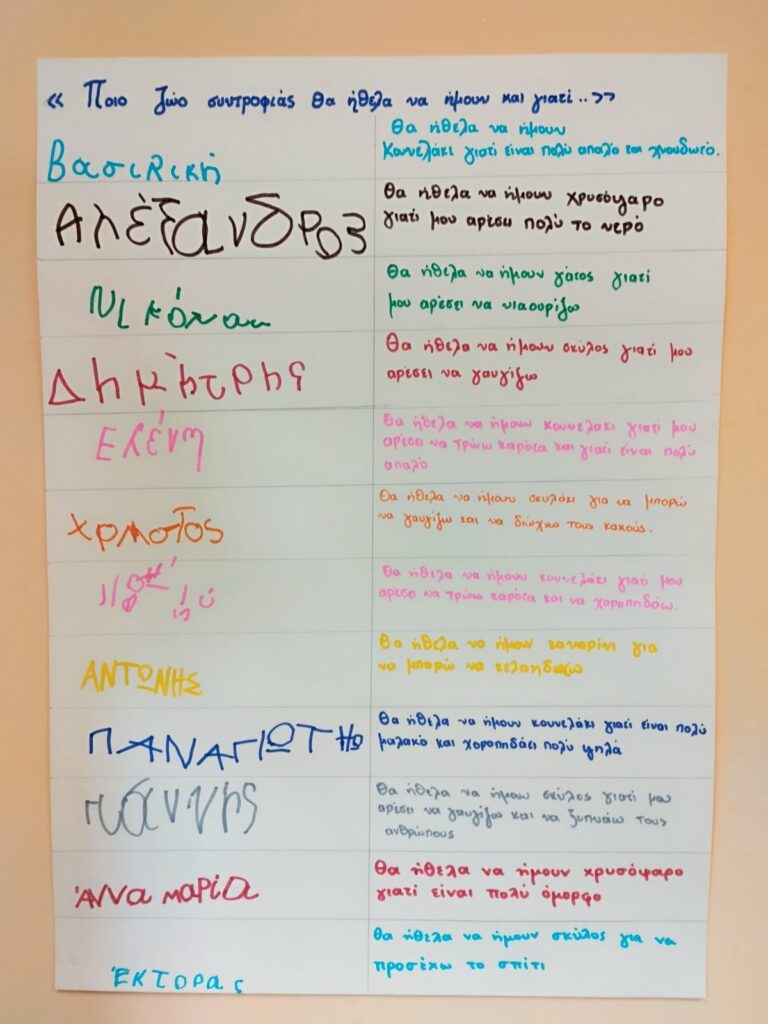 « Ποιο ζώο συντροφιάς θα ήθελα να ήμουν και γιατί..>>
Βασιλική
Θα ήθελα να ήμουν
Κουνελάκι γιατί είναι πολύ απαλό και χνουδωτό.
Αλέξανδρος
Θα ήθελα να ήμουν χρυσόψαρο
γιατί μου αρέσει πολύ το νερό
Νικόλαι
Θα ήθελα να ήμουν γάτος γιατί
μου αρέσει να νιαουρίζω
Δημήτρης
Θα ήθελα να ήμουν σκύλος γιατί μου
αρέσει να γαυγίζω
Ελένη
Θα ήθελα να ήμουν κουνελάκι γιατί μου
αρέσει να τρώω καρότα και γιατί είναι πολύ
απαλό
Χρηστος
Θα ήθελα να ήμουν σκυλάκι για να μπορώ
να γαυγίζω και να διώχνω τους κακούς.
Θα ήθελα να ήμουν κουνελάκι γιατί μου
αρέσει να τρώω καρότα και να χοροπηδάω.
ΑΝΤΩΝΗΣ
Θα ήθελα να ήμουν καναρίνι για
να μπορώ να κελαηδάω
ΠΑΝΑΓΙΩΤΗΣ
Θα ήθελα να ήμουν κουνελάκι γιατί είναι πολύ
μαλακό και χοροπηδάει πολύ ψηλά
Γιάννης
Θα ήθελα να ήμουν σκύλος γιατί μου
αρέσει να γαυγίζω και να ξυπνάω τους
ανθρώπους
Άννα μαρία
Θα ήθελα να ήμουν χρυσόψαρο
γιατί είναι πολύ όμορφο
Έκτορας
Θα ήθελα να ήμουν σκύλος για να
προσέχω το σπίτι